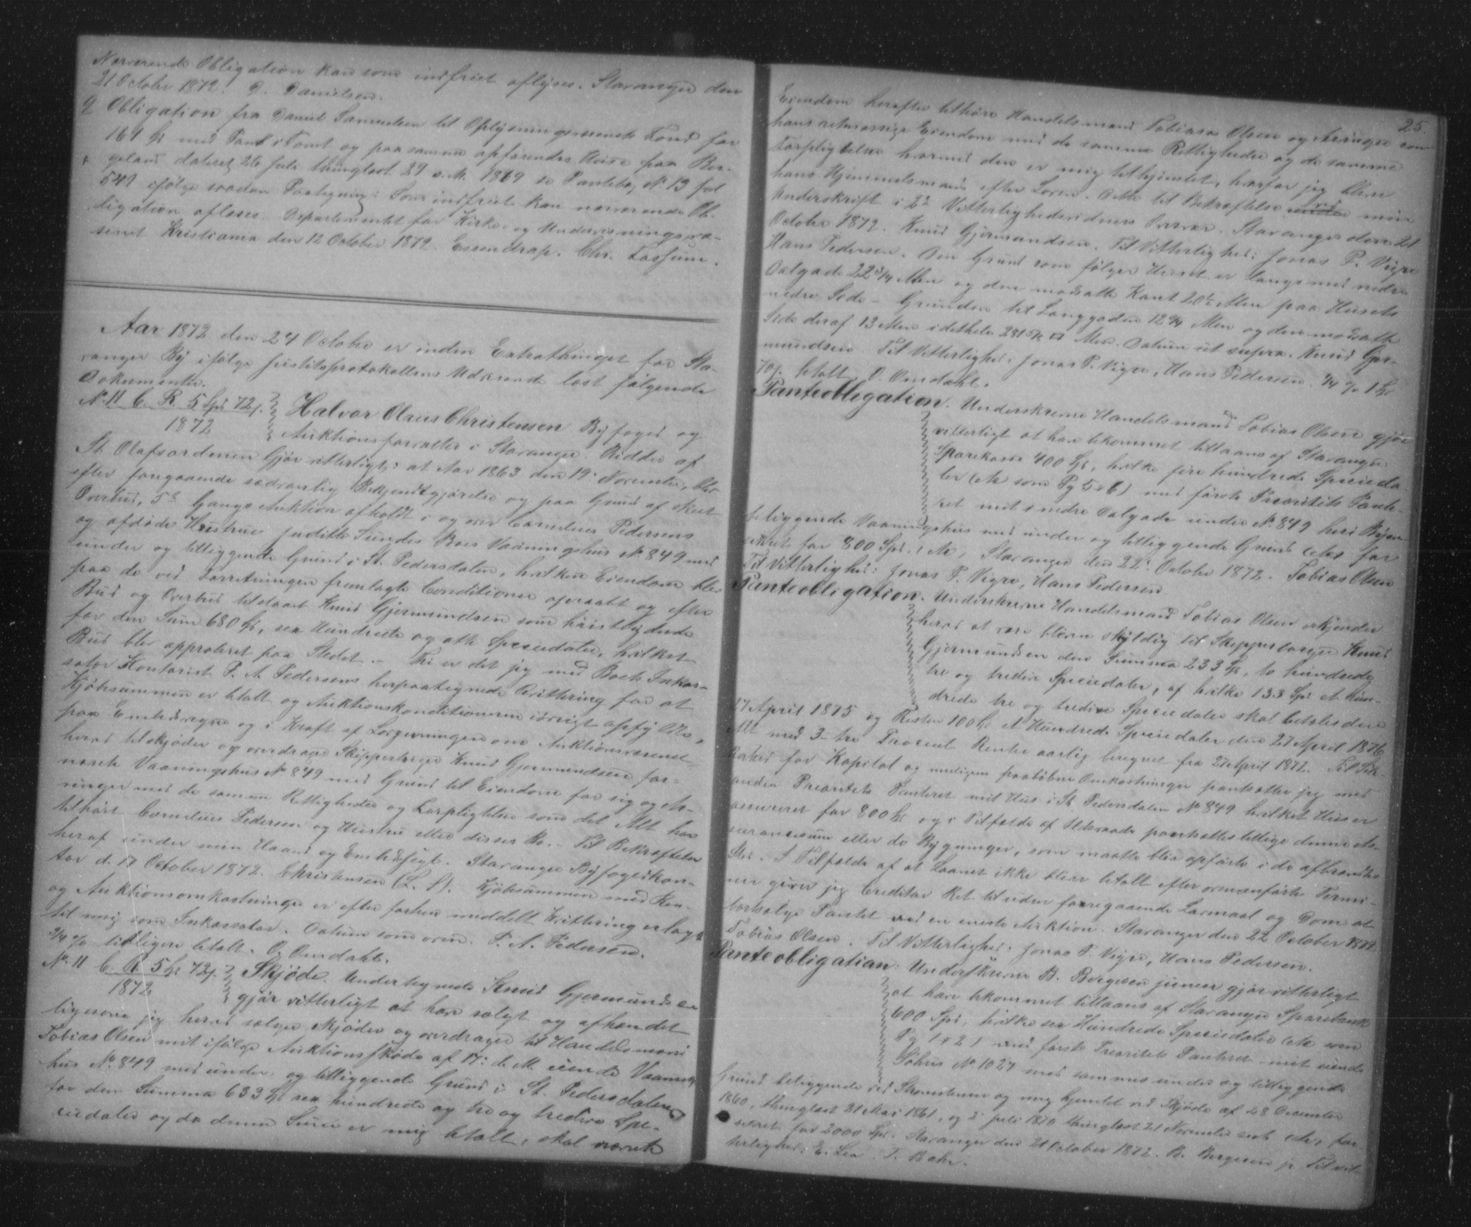 Nærværende Obligation kan som indfriet aflyses. Stavanger den
21 October 1872. D. Danielsen.
Obligation fra Daniel Samuelsen til Oplysningsvæsenets Fond for
161 Sp med Pant i Tomt og paa samme opførendes Huse paa Ber-
geland dateret 26 Juli thinglæst 29 s. M. 1869 se Pantebog No 13 fol
549 ifølge saadan Paategning: Som indfriet kan nærværende Ob-
ligation aflæses. Departementet for Kirke- og Undervisningsvæ-
senet Kristiania den 12 October 1872. Essendrop. Chr. Fossum.
Aar 1872 den 24 October er inden Extrathinget for Sta-
vanger By ifølge Justitsprotokollens Udvisende læst følgende
Dokumenter.
No 11 6 R. 5 Sp 72 s. Halvor Olaus Christensen Byfoged og
1872 Auktionsforvalter i Stavanger Ridder af
St. Olafsordenen Gjør vitterligt: at Aar 1863 den 19 November, blev
efter foregaaende sædvanlig Bekjendtgjørelse og paa Grund af skeet
Overbud, 5te Gangs Auktion afholdt i og over Cornelius Pedersens
og afdøde Hustrue Judith Boes Vaaningshus No 849 med
under og tilliggende Grund i St. Pedersdalen, hvilken Eiendom blev
paa de ved Forretningen fremlagte Conditioner opraabt og efter
Bud og Overbud tilslaaet Knud Gjermundsen som høistbydende
for den Sum 680 Sp, sex Hundrede og otte Speciedaler, hvilket
Bud blev approberet paa Stedet. - Thi er det jeg med Boets Inkas-
sator Kontorist P. A. Pedersens herpaategnede Qvittering for at
Kjøbesummen er betalt og Auktionskonditionerne iøvrigt opfyldte,
paa Embedsvegne og i Kraft af Lovgivningen om Auktionsvæsenet
herved tilskjøder og overdrager Skipperborger Knud Gjermundsen for-
nævnte Vaaningshus No 849 med Grund til Eiendom for sig og Ar-
vinger med de samme Rettigheder og Forpligtelser som det Alt har
tilhørt Cornelius Pedersen og Hustru eller disses Bo. Til Bekræftelse
heraf under min Haand og Embedssegl. Stavanger Byfogedkon-
tor d. 17 October 1872. Christensen (L. S.). Kjøbesummen med Ren-
og Auktionsomkostninger er efter forhen meddelt Qvittering erlagt
til mig som Inkassator. Datum som oven. P. A. Pedersen.
3/4 % tidligere betalt. O. Omdahl.
No 11 6 R. 5 Sp 72 s. Skjøde. Undertegnede Knud Gjermundsen
1872 gjør vitterligt at have solgt og afhændet
ligesom jeg herved sælger, skjøder og overdrager til Handelsmand
Tobias Olsen mit ifølge Auktionsskjøde af 17: d. M. eiende Vaanings-
hus No 849 med under og tilliggende Grund i St. Pedersdalen
for den Summa 633 Sp sex hundrede og tre og tredive Spe-
ciedaler og da denne Sum er mig betalt, skal nævnte
25
Eiendom herefter tilhøre Handelsmand Tobias Olsen og Arvinger som
hans retmæssige Eiendom med de samme Rettigheder og de samme
Forpligtelser hvormed den er mig tilhjemlet, hvorfor jeg bliver
hans Hjemmelsmand efter Loven. Dette til Bekræftelse under min
Underskrift i 2de Vitterlighedsvidners Overvær. Stavanger den 21
October 1872. Knud Gjermundsen. Til Vitterlighed: Jonas P. Vigre
Hans Pedersen. Den Grund som følger Huset er langs med nedre
Dalgade 22 3/4 Alen og den modsatte Kant 20 1/2 Alen paa Husets
nedre Side - Grunden til Langgaden 12 3/4 Alen og den modsatte
Side deraf 13 Alen i dethele Alen. Datum ut supra. Knud Gjer-
mundsen Til Vitterlighed: Jonas P. Vigre, Hans Pedersen. 3/4 % 1 Sp
70 s. betalt O. Omdahl.
Panteobligation. Underskrevne Handelsmand Tobias Olsen gjør
vitterligt at have bekommet tillaans af Stavanger
Sparekasse 400 Sp, hvilke fire hundrede Specieda-
ler (etc som Pg 5 & 6) med første Prioritets Pante-
ret mit i nedre Dalgade under No 849 her i Byen
beliggende Vaaningshus med under og tilliggende Grund (etc for-
sikret for 800 Spd. etc, Stavanger den 22 October 1872. Tobias Olsen
Til Vitterlighed: Jonas P. Vigre, Hans Pedersen.
Panteobligation. Underskrevne Handelsmand Tobias Olsen erkjender
herved at være bleven skyldig til Skipperborger Knud
Gjermundsen den Summa 233 Sp, to hundrede
tre og tredive Speciedaler, af hvilke 133 Sp et Hun-
drede tre og tredive Speciedaler skal betales den
27 April 1875 og Resten 100 Sp. et Hundrede Speciedaler den 27 April 1876
Alt med 3 tre Procent Rente aarlig beregnet fra 27 April 1872. Til Sik-
kerhed for Kapital og muligen paaløbne Omkostninger pantsætter jeg med
anden Prioritets Panteret mit Hus i St. Pedersdalen No 849 hvilket Hus er
assureret for 800 Sp og i Tilfælde af Ildsvaade pantsættes tillige denne As-
suranscesum eller de Bygninger, som maatte blive opførte i de afbrændtes
Sted. I Tilfælde af at Laanet ikke bliver betalt efter ovenanførte Termi-
ner giver jeg Creditor Ret til uden foregaaende Lovmaal og Dom at
bortsælge Pantet ved en eneste Auktion. Stavanger den 22 October 1872
Tobias Olsen. Til Vitterlighed: Jonas P. Vigre, Hans Pedersen.
Panteobligation. Underskrevne B. Borgesen junior gjør vitterligt
at have bekommet tillaans af Stavanger Sparebank
600 Spd., hvilke sex Hundrede Speciedaler (etc som
Pg 1 & 2) med første Prioritets Panteret mit eiende
Søhus No 1027 med sammes under og tilliggende
Grund beliggende ved og mig hjemlet ved Skjøde af 28 December
1860, thinglæst 21 Mai 1861, og 5 Juli 1870 thinglæst 21 November (etc, for-
sikret for 2000 Spd. Stavanger den 21 October 1872. B. Borgesen jr. Til Vit-
terlighed: E. Lea. T. Bahr.